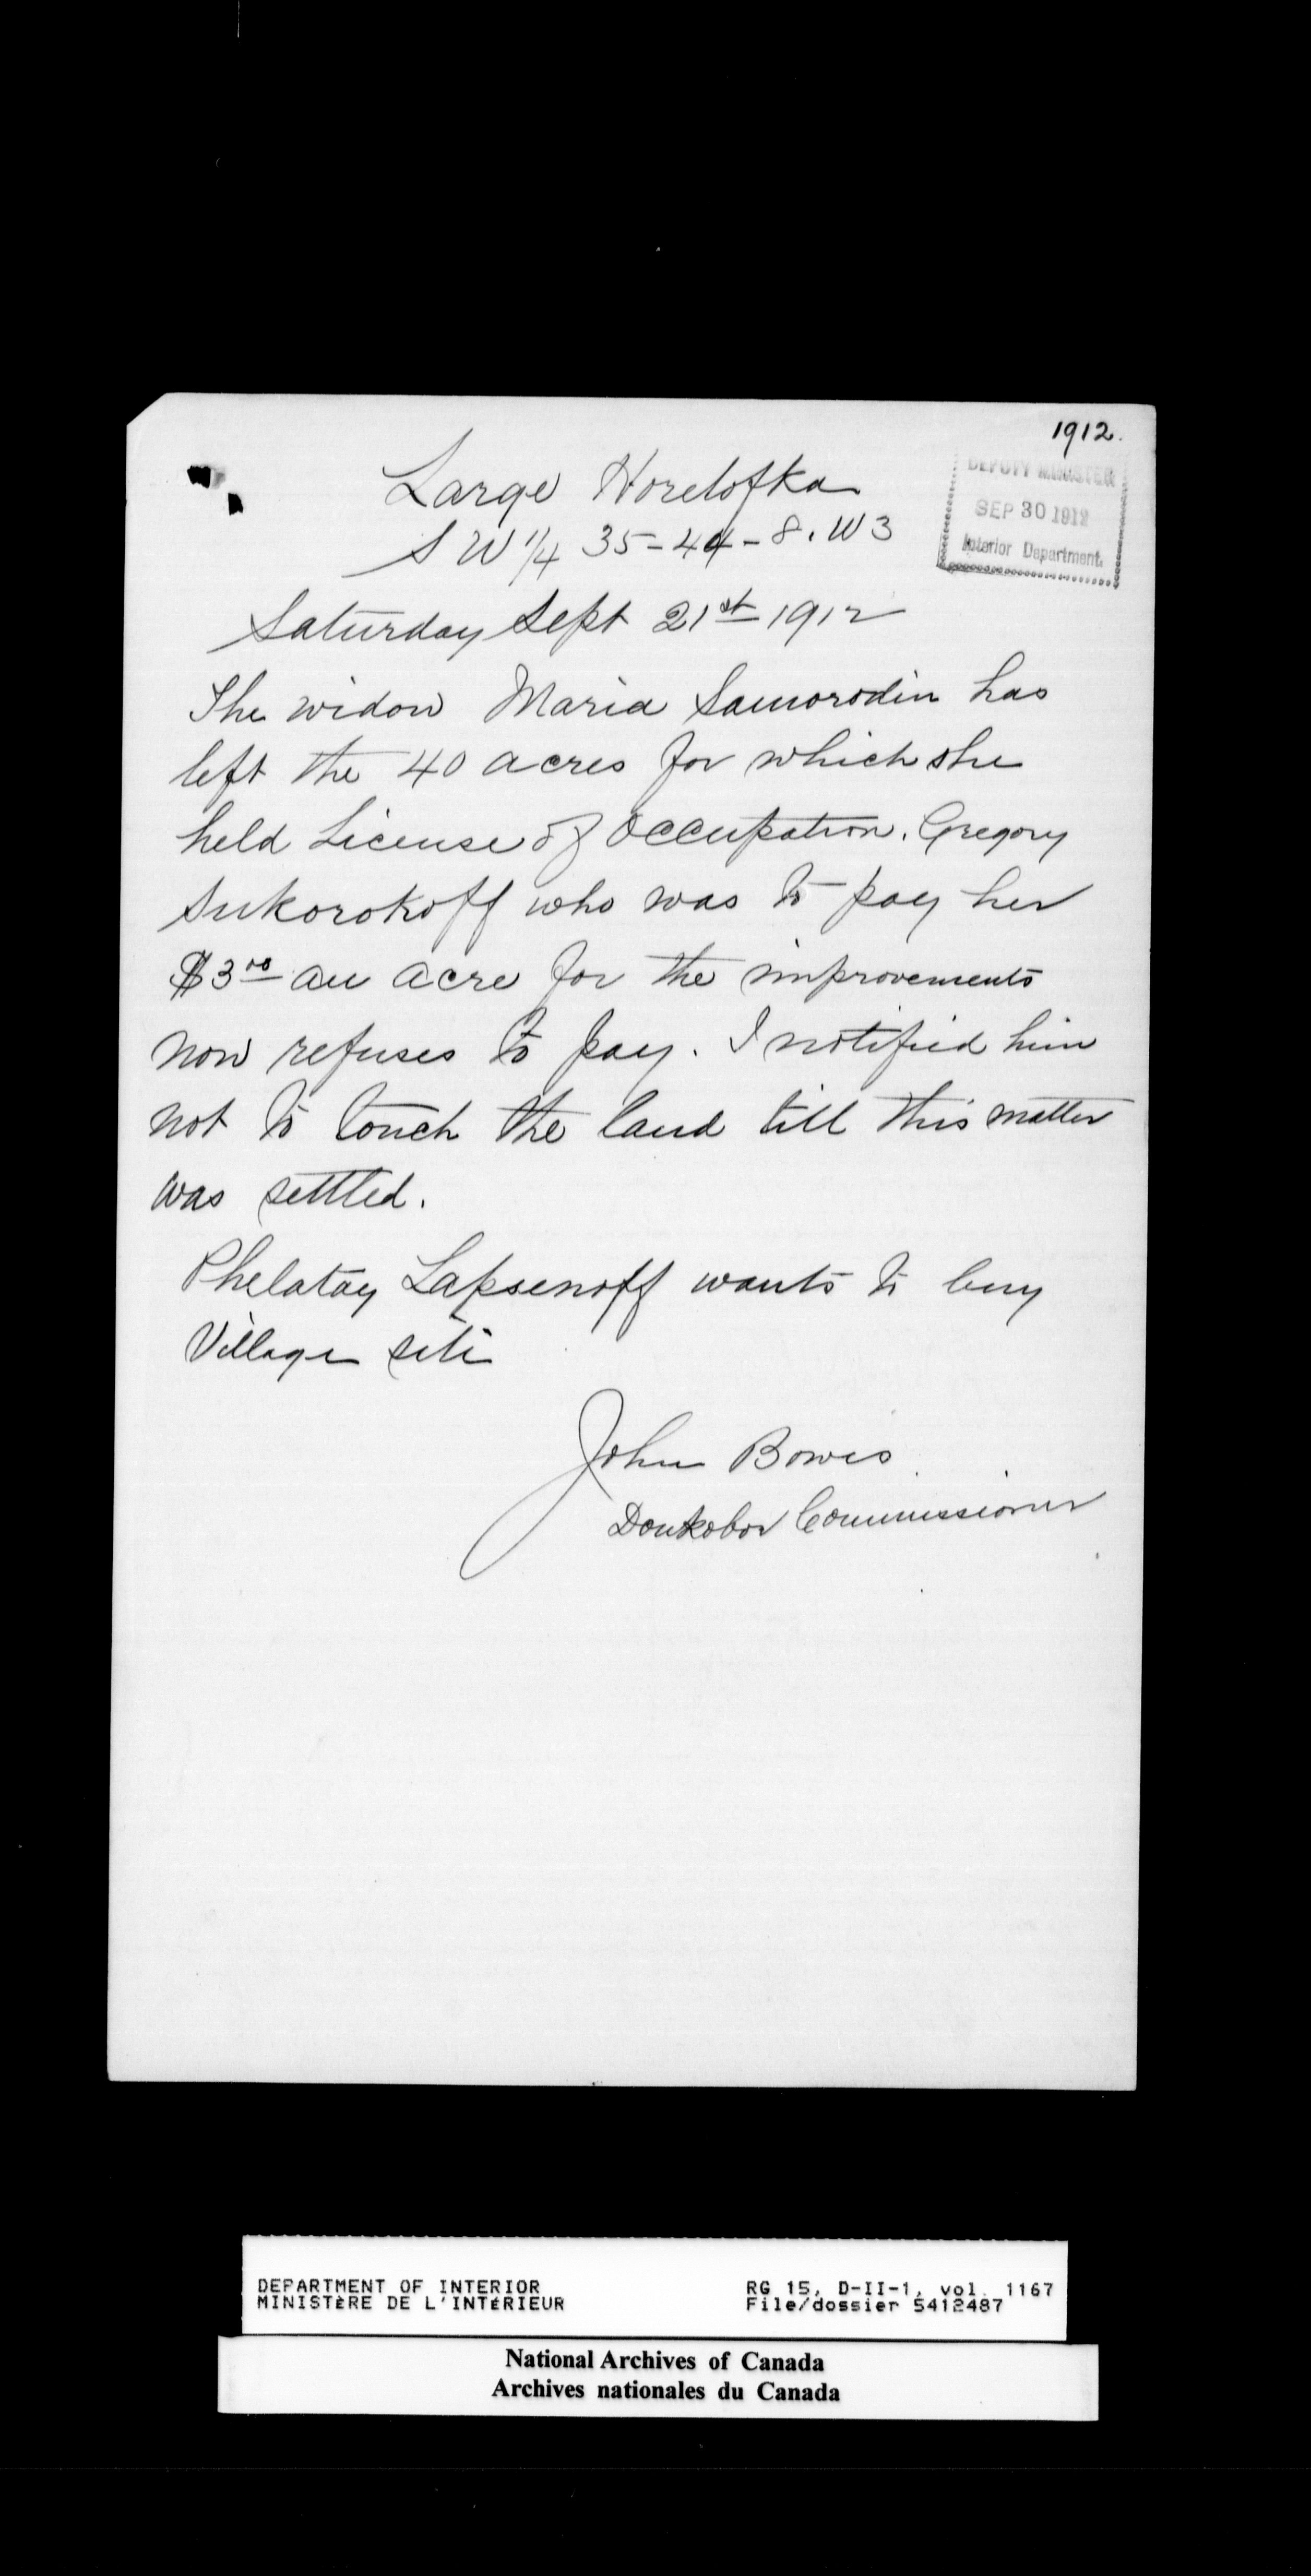 1912.
DEPUTY MINISTER
SEP 30 1912
Interior Department.
Large Horelofka
S W 1/4 35-44-8. W 3
Saturday Sept 21st 1912
The widow Maria Samorodin has
left the 40 acres for which she
held License of Occupation. Gregory
Sukorokoff who was to pay her
$3.00 an acre for the improvements
now refuses to pay. I notified him
not to touch the land till this matter
was settled.
Phelatay Lapsenoff wants to buy
Village site
John Bowes
Doukobor Commissioner
DEPARTMENT OF INTERIOR
MINISTÈRE DE L'INTÉRIEUR
RG 15, D-II-1, vol. 1167
File/dossier 5412487
National Archives of Canada
Archives nationales du Canada